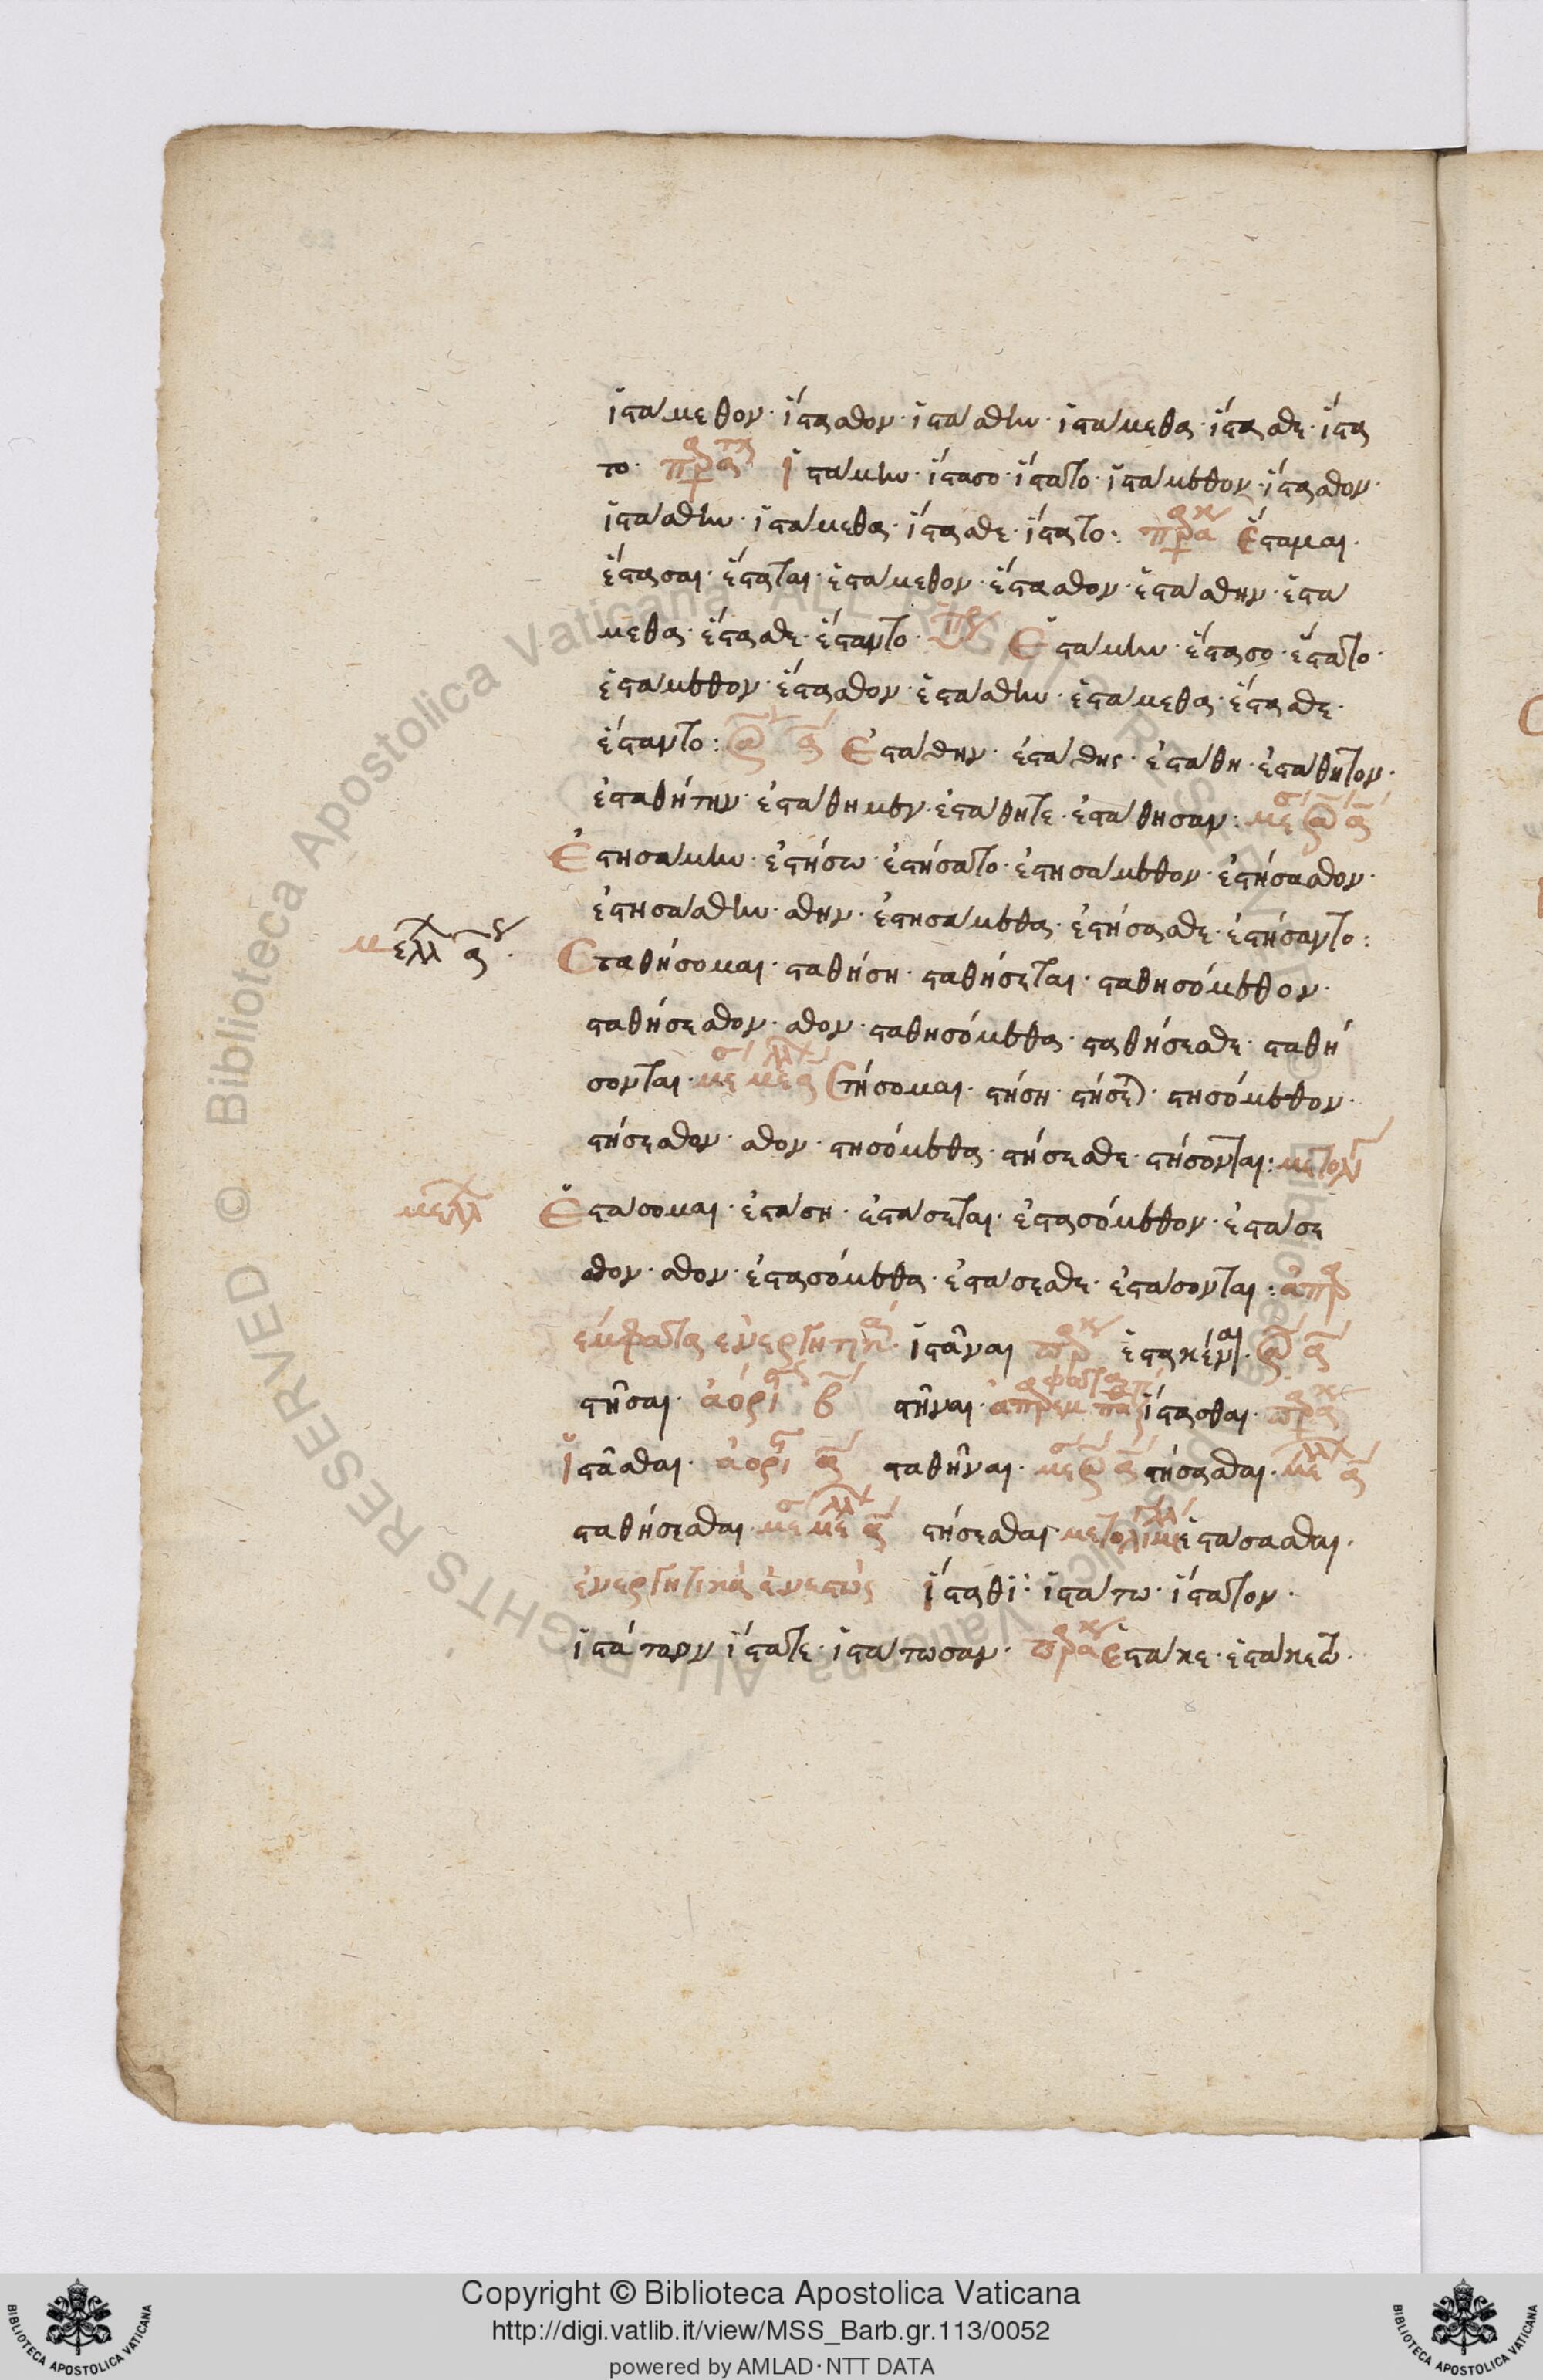 ἱστάμεθον· ἵστασθον· ἱστάσθην· ἱστάμεθα· ἵστασθε· ἵστα
το· ἱστάμην· ἵστασο· ἵστατο· ἱστάμεθον· ἵστασθον·
ἱστάσθην· ἱστάμεθα· ἵστασθε· ἵστατο: ἕσταμαι·
ἕστασαι· ἕσταται· ἑστάμεθον· ἕστασθον· ἑστάσθην· ἑστά
μεθα· ἕστασθε· ἕσταντο· Ἑστάμην· ἕστασο· ἕστατο·
ἑστάμεθον· ἕστασθον· ἑστάσθην· ἑστάμεθα· ἕστασθε·
ἕσταντο: Ἐστάθην· ἐστάθης· ἐστάθη· ἐστάθητον·
ἐσταθήτην· ἐστάθημεν· ἐστάθητε· ἐστάθησαν:
Ἐστησάμην· ἐστήσω· ἐστήσατο· ἐστησάμεθον· ἐστήσασθον·
ἐστησάσθην· σθην· ἐστησάμεθα· ἐστήσασθε· ἐστήσαντο:
μελλ α
Σταθήσομαι· σταθήση· σταθήσεται· σταθησόμεθον·
σταθήσεσθον· σθον· σταθησόμεθα· σταθήσεσθε· σταθή
σονται· Στήσομαι· στήση· στήσεται· στησόμεθον·
στήσεσθον· σθον· στησόμεθα· στήσεσθε· στήσονται: μετολ
μελλ
Ἑστάσομαι· ἑστάση· ἑστάσεται· ἑστασόμεθον· ἑστάσε
σθον· σθον· ἑστασόμεθα· ἑστάσεσθε· ἑστάσονται: ἀπαρ
εμφατα ενεργητικ· ἱστάναι ἑστακέναι·
στῆσαι· ἀόρι β στῆναι· ἵστασθαι·
ἱστᾶσθαι· ἀορι α σταθῆναι· στήσασθαι·
σταθήσεσθαι στήσεσθαι ἑστάσασθαι·
ἐνεργητικὰ ἐνεστώς ἵσταθι: ἱστάτω· ἵστατον·
ἱστάτων ἵστατε· ἱστάτωσαν· ἕστακε· ἑστακέτω·
Copyright © Biblioteca Apostolica Vaticana
http://digi.vatlib.it/view/MSS_Barb.gr.113/0052
powered by AMLAD·NTT DATA